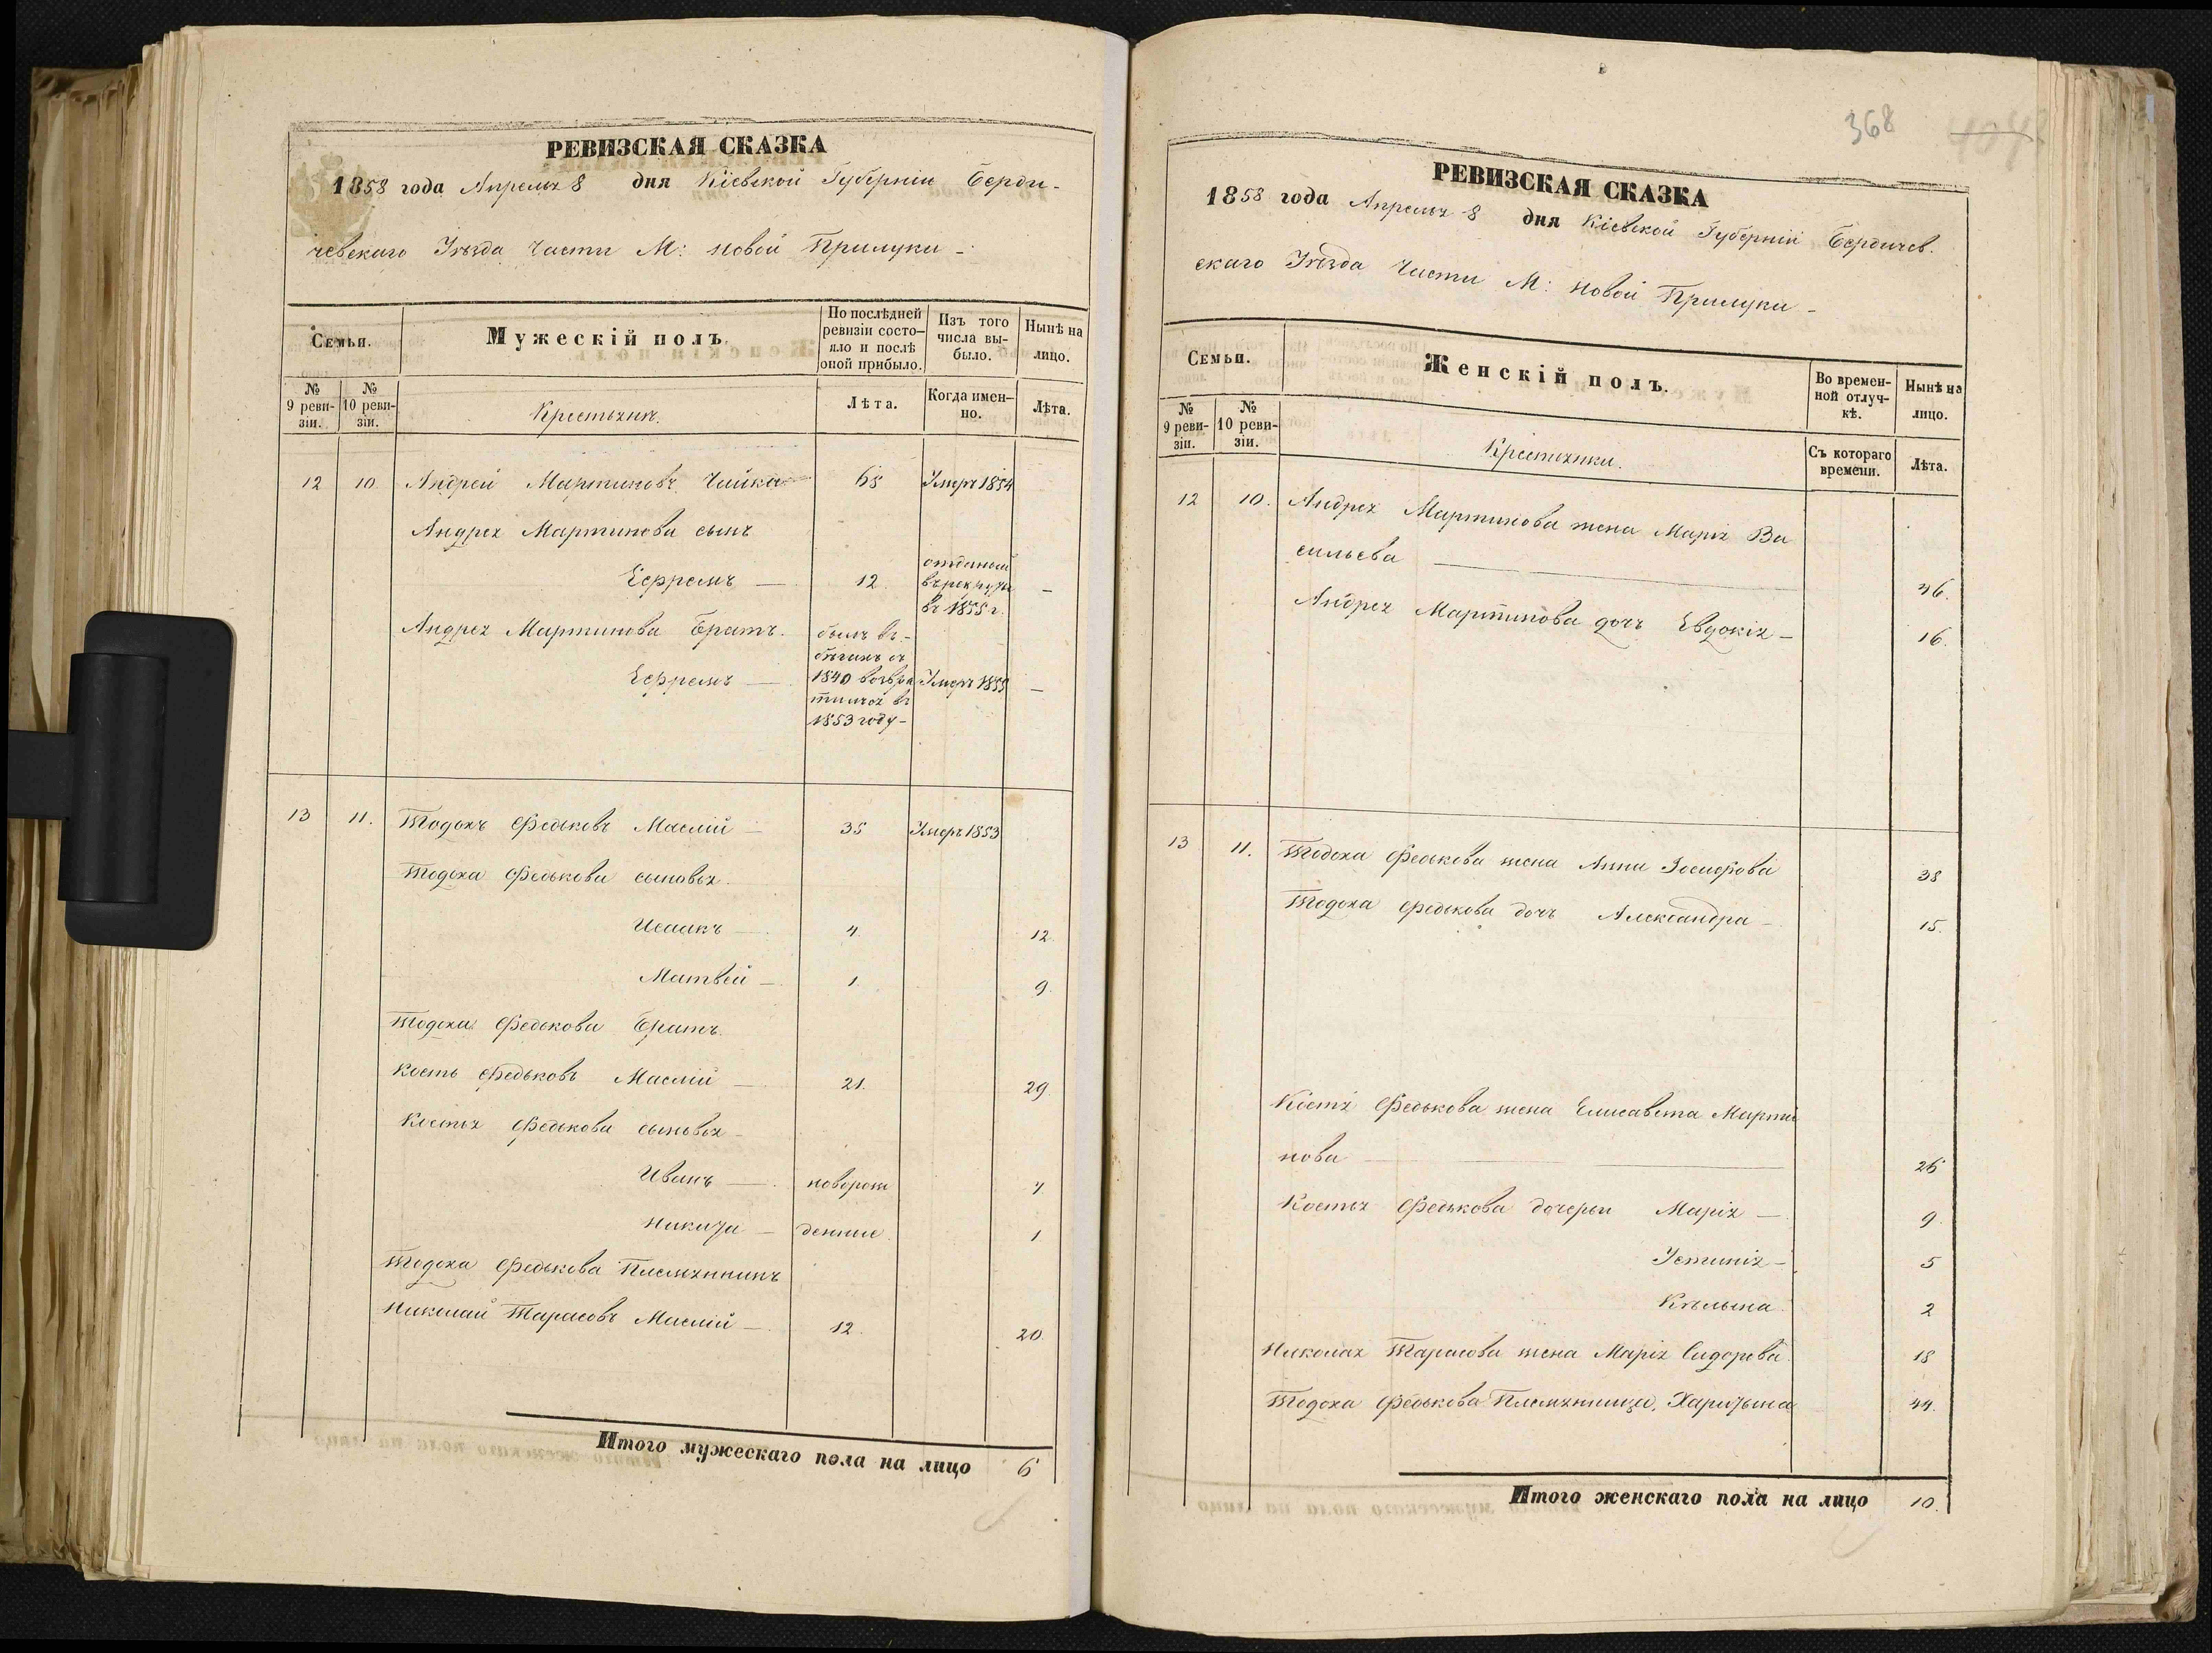 РЕВИЗСКАЯ СКАЗКА
1858 года Апреля 8 дня Кіевской Губерніи Берди-
чевскаго Уѣзда Части М: Новой Прилуки -
Семьи.
Мужескій полъ.
По послѣдней ревизіи состо-яло и послѣ оной прибыло.
Изъ того числа вы-было.
Нынѣ на лицо.
№ 9 реви-зіи.
№ 10 реви-зіи.
Крестьянъ.
Лѣта.
Когда имен-но.
Лѣта.
12 10 Андрей Мартиновъ Чайка 65 Умеръ 1854
Андрея Мартинова сынъ
Ефремъ — 12. отданный въ рекруты въ 1855 г. —
Андрея Мартинова братъ.
Ефремъ — былъ въ бѣгахъ съ 1840 возвра тился въ 1853 году - Умеръ 1855 —
13 11. Тодохъ Федьковъ Маслій — 35 Умеръ 1853
Тодоха Федькова сыновья.
Исаакъ — 4. 12.
Матвей — 1. 9.
Тодоха Федькова Братъ.
Кость Федьковъ Маслій — 21. 29.
Костья Федькова сыновья -
Иванъ — новорож 7
Никита — денные. 1
Тодоха Федькова Племянникъ
Николай Тарасовъ Маслій — 12. 20.
Итого мужескаго пола на лицо 6
368
РЕВИЗСКАЯ СКАЗКА
1858 года Апреля 8 дня Кіевской Губерніи Бердичев.
скаго Уѣзда Части М: Новой Прилуки -
Семьи.
Женскій полъ.
Во времен-ной отлуч-кѣ.
Нынѣ на лицо.
№ 9 реви-зіи.
№ 10 реви-зіи.
Крестьянки.
Съ котораго времени.
Лѣта.
12 10. Андрея Мартинова жена Марія Ва
сильева — 46.
Андрея Мартинова дочь Евдокія — 16.
13 11. Тодоха Федькова жена Анна Іосифова 38
Тодоха Федькова дочь Александра — 15.
Костя Федькова жена Елисавета Марти
нова — 26
Костья Федькова дочери Марія — 9.
Устинія — 5
Кѣлына 2
Николая Тарасова жена Марія Сидорова. 18
Тодоха Федькова Племянница, Харитына 44.
Итого женскаго пола на лицо 10.